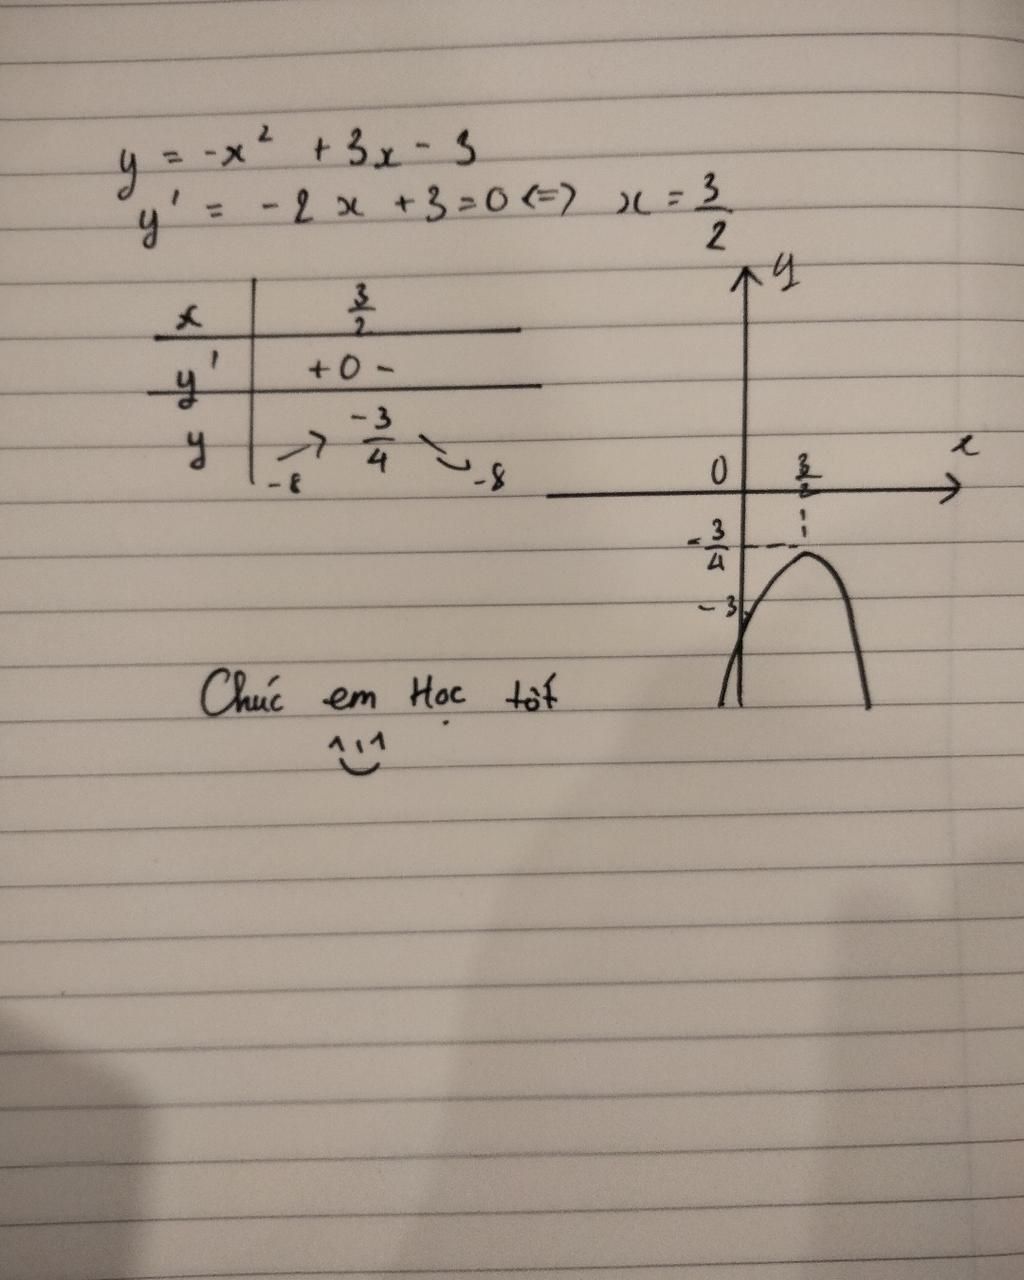 y = -x² + 3x - 3
y' = -2x + 3 = 0 <=> x = 3/2
x 3/2
y' + 0 -
y -8 -3/4 -8
y
x
0 3/2
-3/4
-3
Chúc em Học tốt